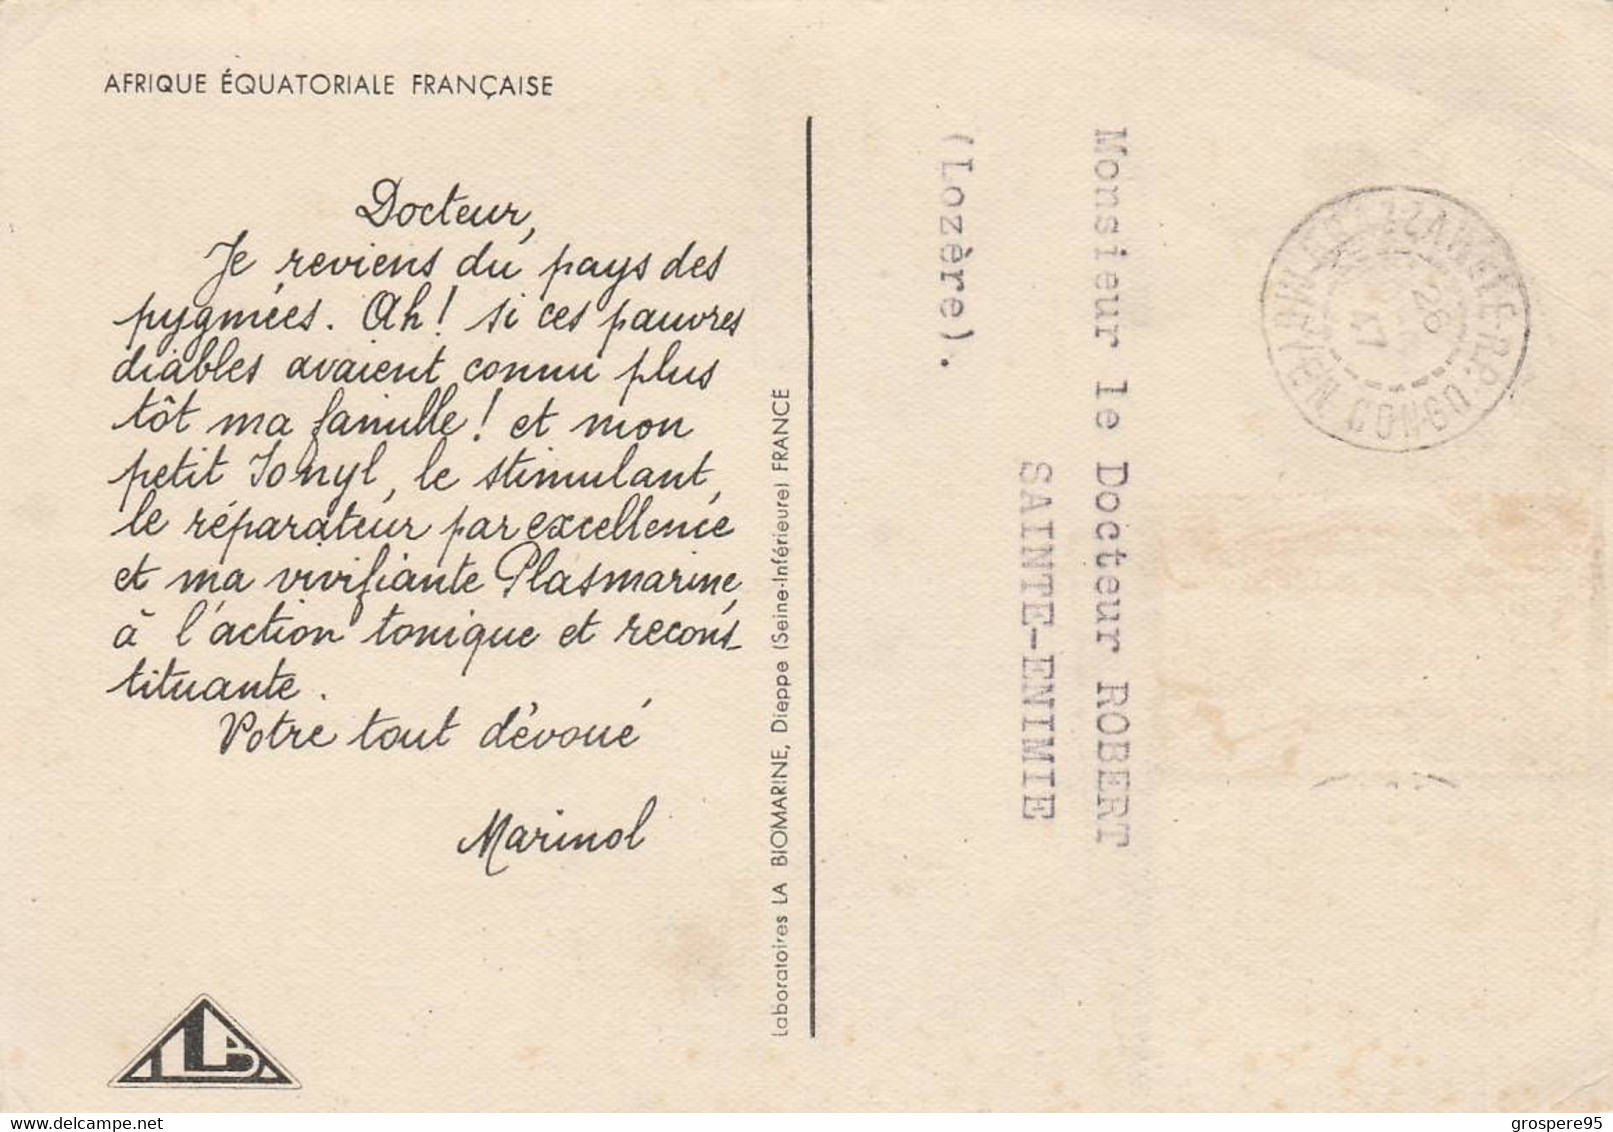 AFRIQUE ÉQUATORIALE FRANÇAISE
Docteur,
Je reviens du pays des
pygmées. Ah! si ces pauvres
diables avaient connu plus
tôt ma famille! et mon
petit Ionyl, le stimulant,
le réparateur par excellence
et ma vivifiante Plasmarine,
à l'action tonique et recons-
tituante.
Votre tout dévoué
Marinol
Laboratoires LA BIOMARINE, Dieppe (Seine-Inférieure) FRANCE
Monsieur le Docteur ROBERT
SAINTE-ENIMIE
(Lozère).
BRAZZAVILLE-R.P.
26
MOYEN CONGO
delcampe.net
grospere95